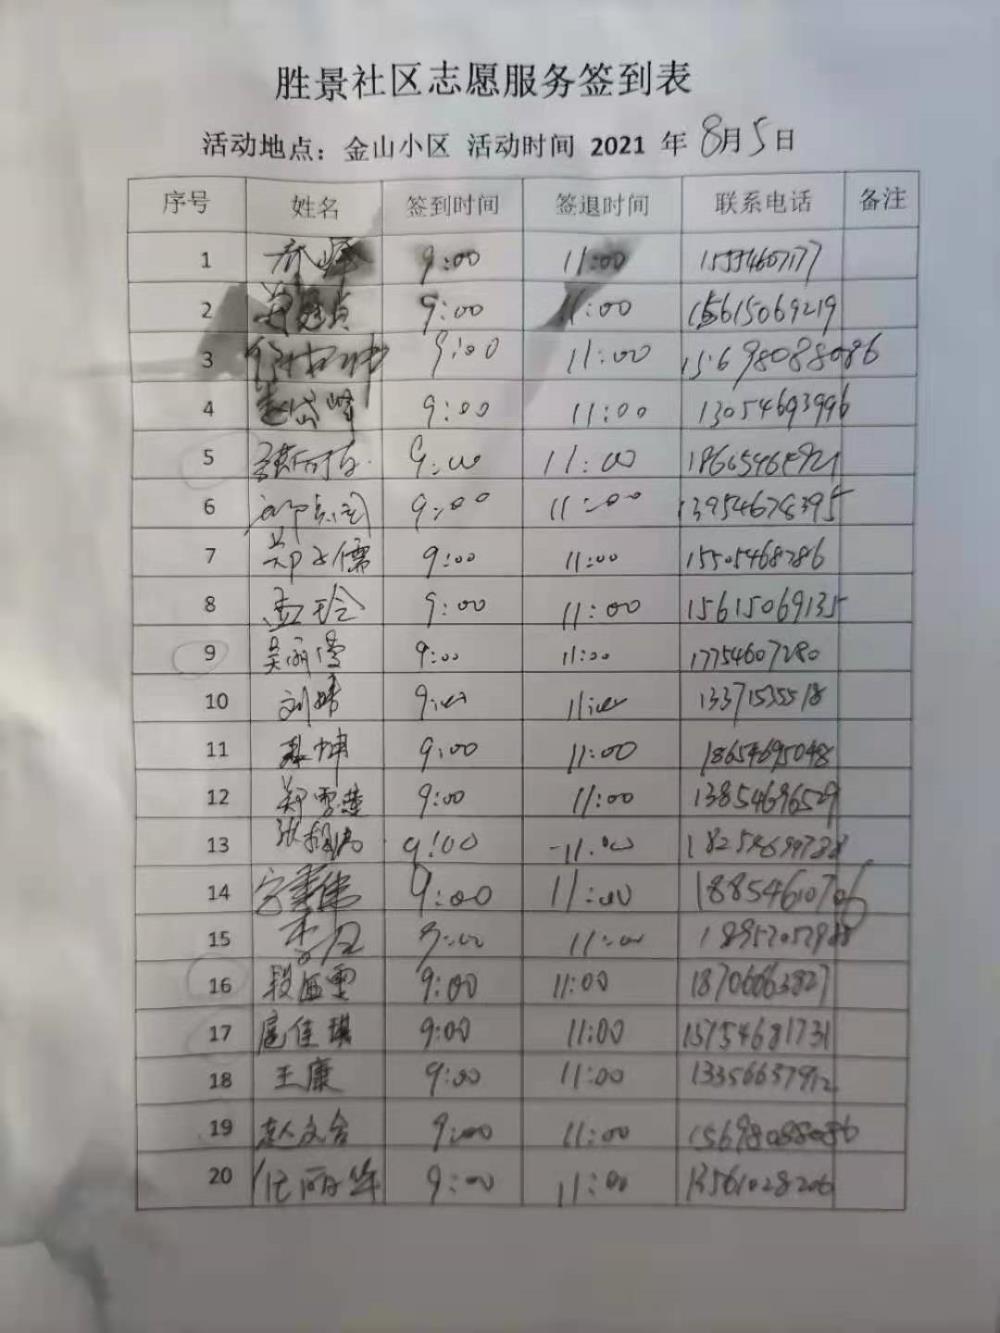 胜景社区志愿服务签到表
活动地点：金山小区 活动时间 2021 年 8月5日
序号 姓名 签到时间 签退时间 联系电话 备注
1 9:00 11:00 15554607177
2 9:00 11:00 15615069219
3 9:00 11:00 15698088086
4 赵岱峰 9:00 11:00 13054693996
5 9:00 11:00
6 9:00 11:00 13954678395
7 郑子儒 9:00 11:00 15505468286
8 孟玲 9:00 11:00 15615069135
9 9:00 11:00 17754607280
10 刘婷 9:00 11:00 13371535518
11 9:00 11:00 18654695048
12 郑雪莲 9:00 11:00 13854696529
13 9:00 11:00
14 9:00 11:00 18854610706
15 9:00 11:00
16 9:00 11:00 18706663827
17 扈佳琪 9:00 11:00 15154681731
18 王康 9:00 11:00 13356637912
19 赵文合 9:00 11:00 15698088086
20 任丽华 9:00 11:00 13561028206